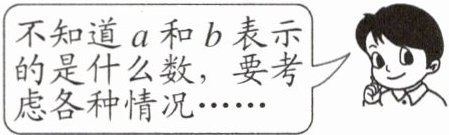 不知道 a 和 b 表示
的是什么数，要考
虑各种情况……